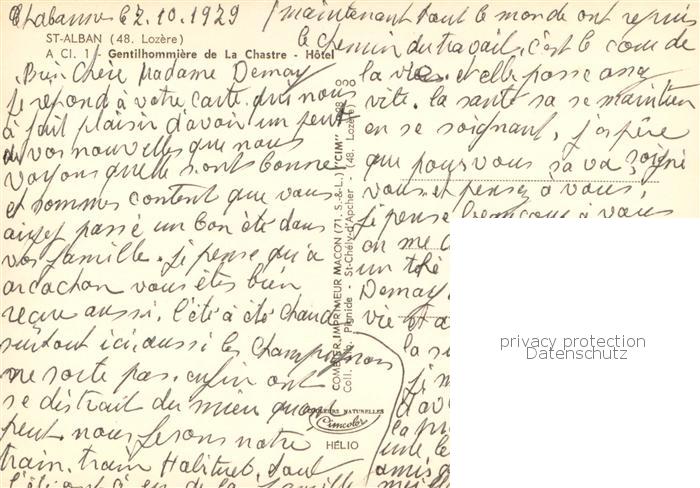 Chabannes le 2.10.1979
ST-ALBAN (48. Lozère)
A Cl. 1 - Gentilhommière de La Chastre - Hôtel
Bien Chère Madame Demay
je repond à votre carte qui nous
à fait plaisir d'avoir un peut
de vos nouvelles que nous
voyons quelle sont bonne
et sommes content que vous
aiyez passé un bon été dans
vos famille. je pense qu'à
arcachon vous êtes bien
reçue aussi. l'été à été chaude
surtout ici, aussi les champignons
ne sorte pas. enfin ont
se distrait du mieu quont
peut. nous fesons notre
train. train Habituel. Tout
l'été ont à eu de la famille
COMBIER IMPRIMEUR MACON (71. S.-&-L.) "CIM"
Coll. Lib. Pignide - St-Chély-d'Apcher - (48. Lozère)
COULEURS NATURELLES
Cimcolor
HÉLIO
maintenant tout le monde ont repris
le chemin du travail, c'est le cour de
la vie. et elle passe assez
vite. la santé sa se maintien
en se soignant, j'aspère
que pour vous sa va, soigné
vous et pensez à vous,
je pense beaucoup à vous
on me
un thé
Demay
vie et a
la
je m
d'av
la
une le
amis
meill
privacy protection
Datenschutz